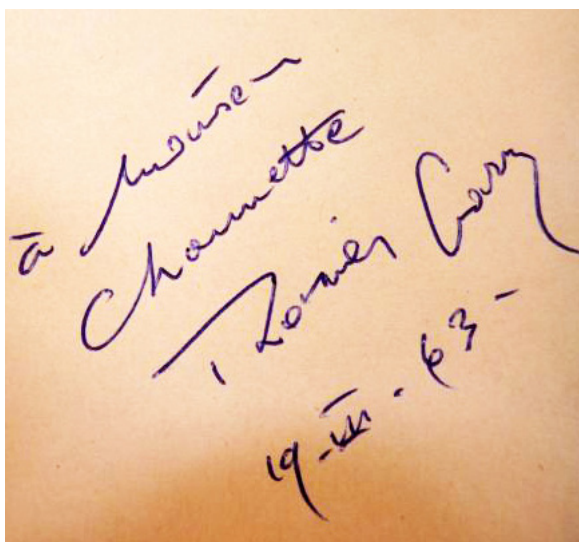 à Monsieur
Chaumette
Romain Gary
19 . 63 -